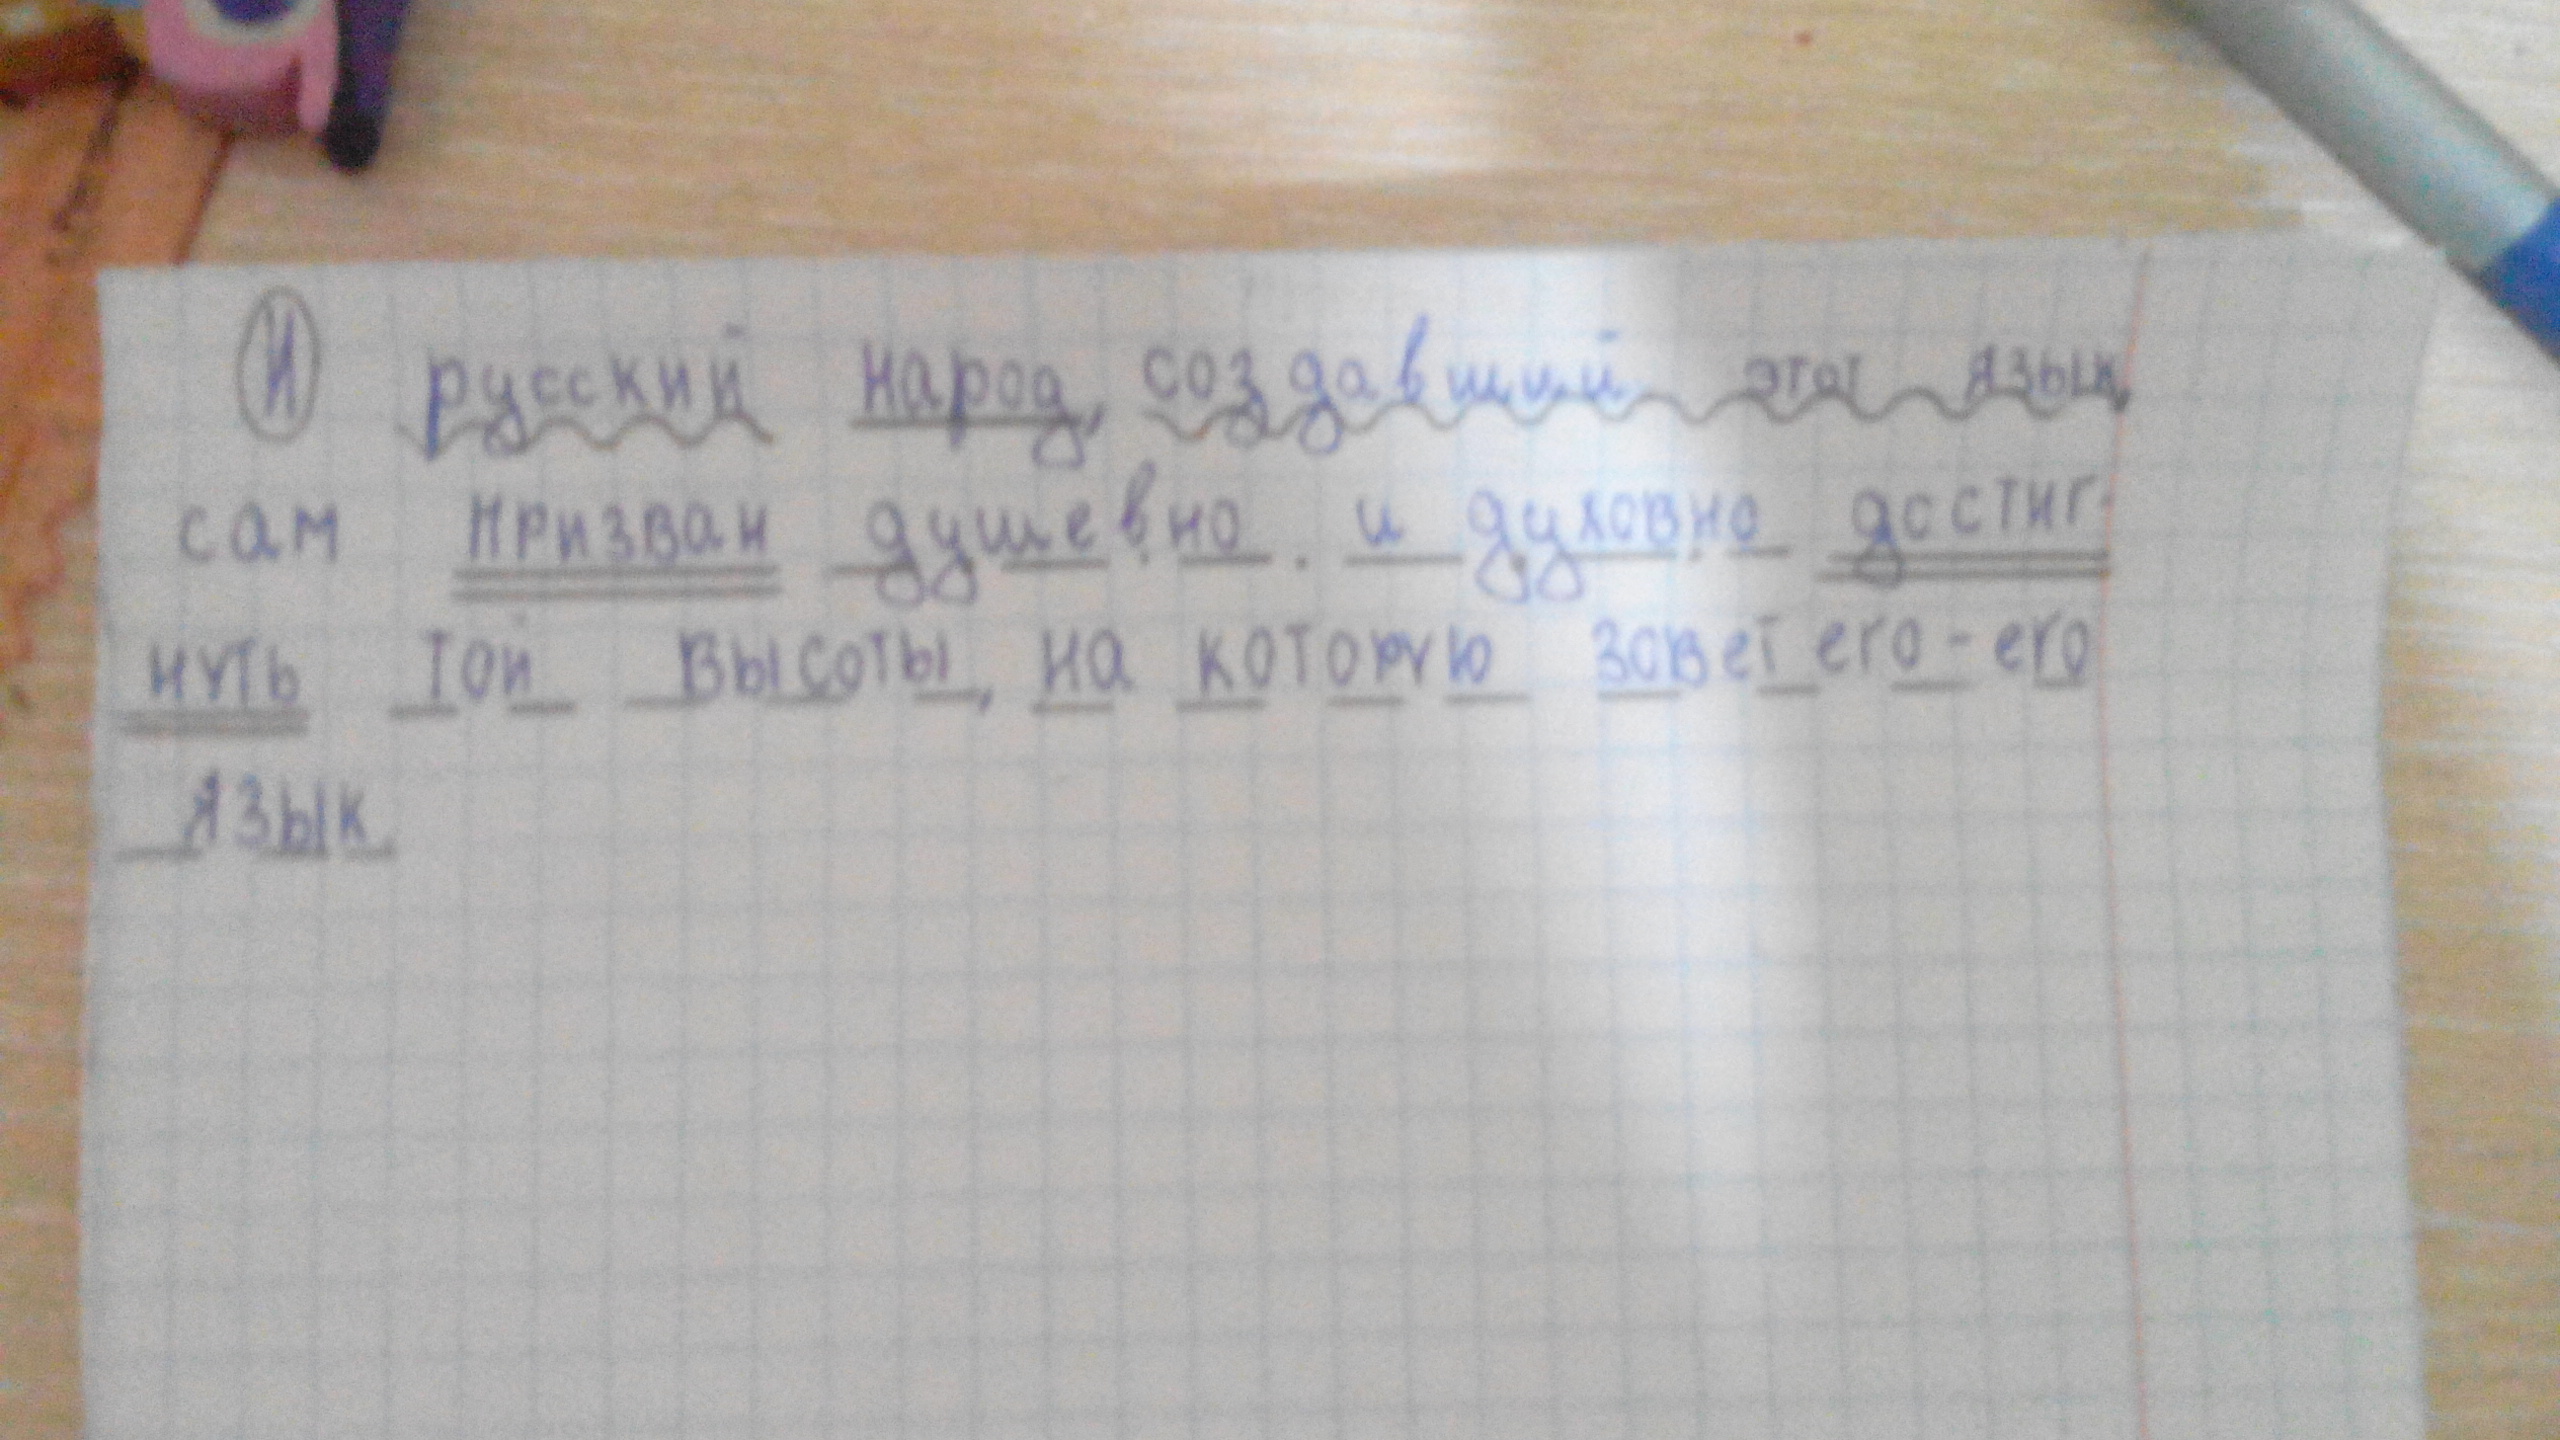 И русский народ, создавший этот язык,
сам призван душевно и духовно достиг-
нуть той высоты, на которую зовет его - его
язык.